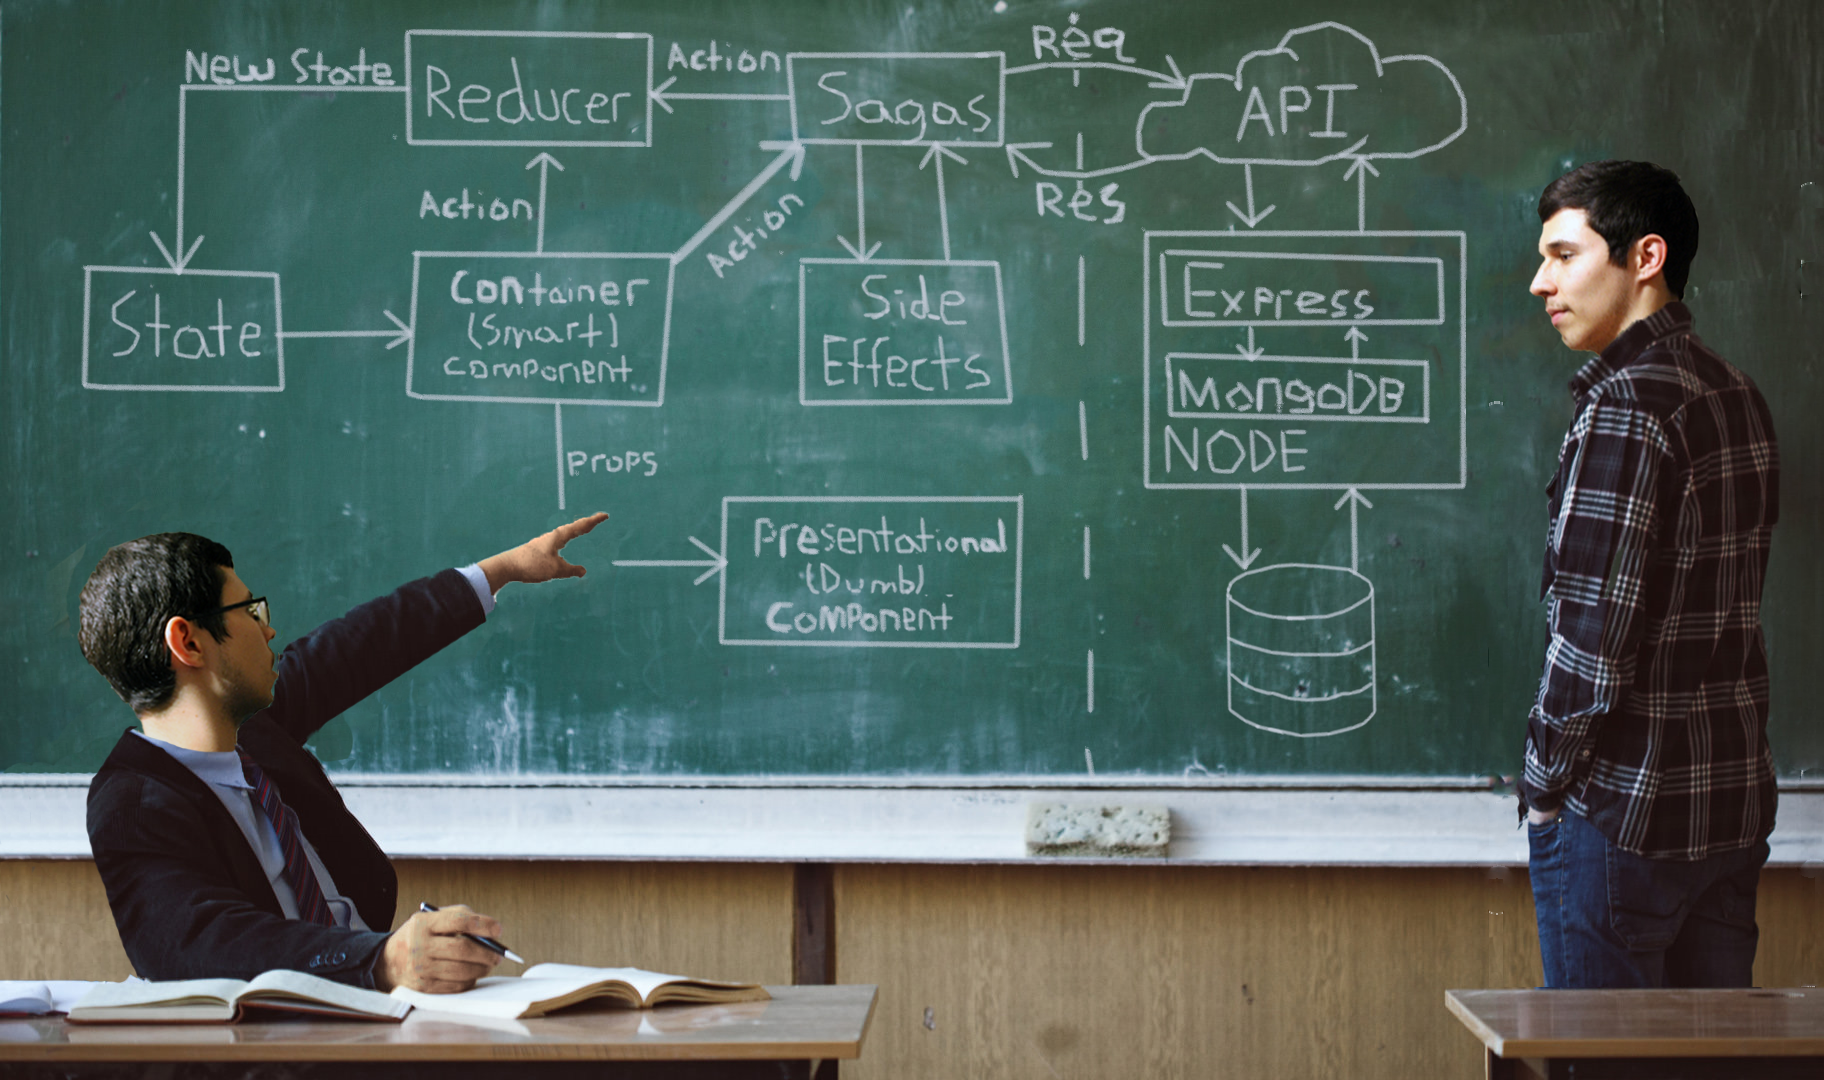 New State
Reducer
Action
Sagas
Req
API
Action
Action
Res
State
Container
(Smart)
component
Side
Effects
Express
MongoDB
NODE
props
Presentational
(Dumb)
Component